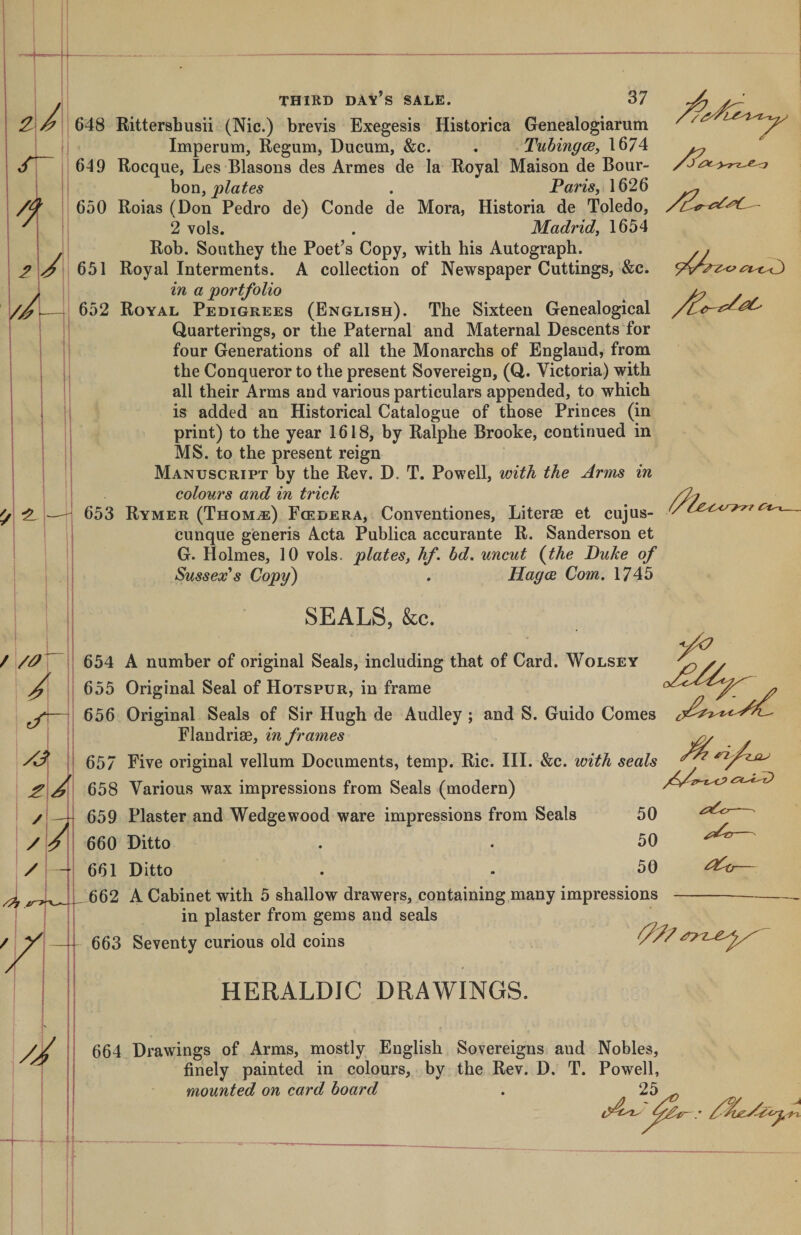 THIRD DAY'S SALE. 37
648 Rittershusii (Nic.) brevis Exegesis Historica Genealogiarum
Imperum, Regum, Ducum, &c. . Tubingœ, 1674
649 Rocque, Les Blasons des Armes de la Royal Maison de Bour-
bon, plates . Paris, 1626
650 Roias (Don Pedro de) Conde de Mora, Historia de Toledo,
2 vols. . Madrid, 1654
Rob. Southey the Poet's Copy, with his Autograph.
651 Royal Interments. A collection of Newspaper Cuttings, &c.
in a portfolio
652 Royal Pedigrees (English). The Sixteen Genealogical
Quarterings, or the Paternal and Maternal Descents for
four Generations of all the Monarchs of England, from
the Conqueror to the present Sovereign, (Q. Victoria) with
all their Arms and various particulars appended, to which
is added an Historical Catalogue of those Princes (in
print) to the year 1618, by Ralphe Brooke, continued in
MS. to the present reign
Manuscript by the Rev. D. T. Powell, with the Arms in
colours and in trick
653 Rymer (Thomæ) Fœdera, Conventiones, Literæ et cujus-
cunque generis Acta Publica accurante R. Sanderson et
G. Holmes, 10 vols. plates, hf. bd. uncut (the Duke of
Sussex's Copy) . Hagœ Com. 1745
SEALS, &c.
654 A number of original Seals, including that of Card. Wolsey
655 Original Seal of Hotspur, in frame
656 Original Seals of Sir Hugh de Audley ; and S. Guido Comes
Flandriæ, in frames
657 Five original vellum Documents, temp. Ric. III. &c. with seals
658 Various wax impressions from Seals (modern)
659 Plaster and Wedgewood ware impressions from Seals 50
660 Ditto . . 50
661 Ditto . . 50
662 A Cabinet with 5 shallow drawers, containing many impressions
in plaster from gems and seals
663 Seventy curious old coins
HERALDIC DRAWINGS.
664 Drawings of Arms, mostly English Sovereigns and Nobles,
finely painted in colours, by the Rev. D. T. Powell,
mounted on card board . 25